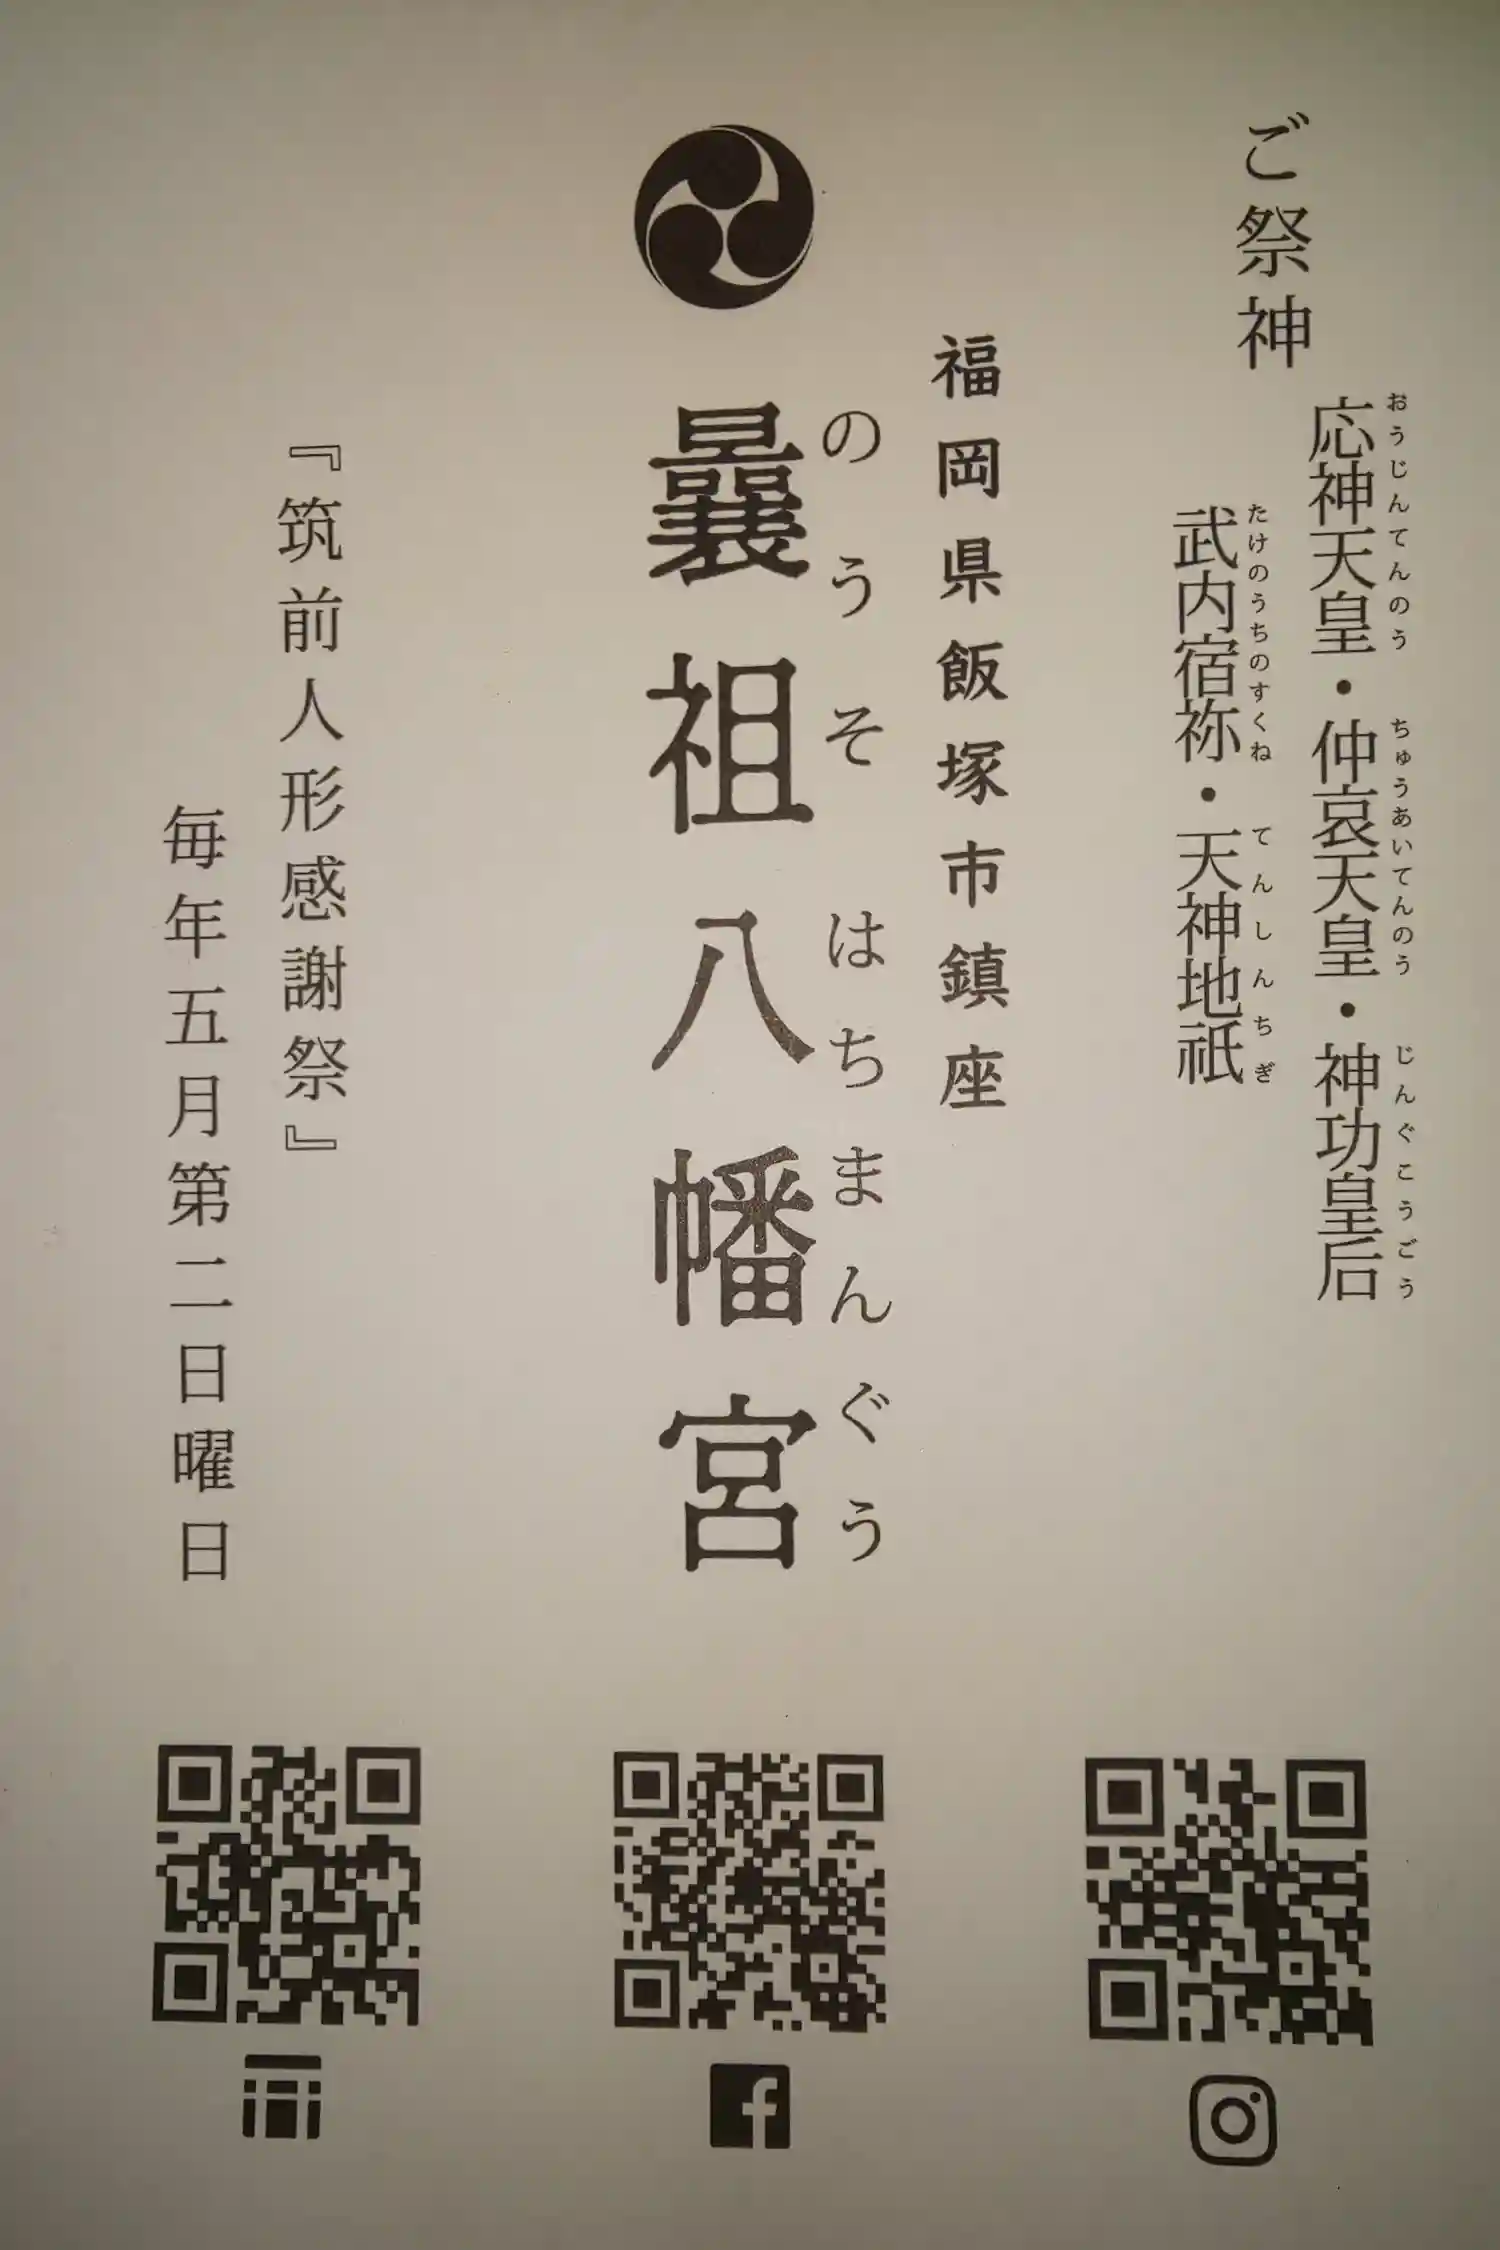 ご祭神
おうじんてんのう ちゅうあいてんのう じんぐこうごう
応神天皇・仲哀天皇・神功皇后
たけのうちのすくね てんしんちぎ
武内宿祢・天神地祇
福岡県飯塚市鎮座
のうそはちまんぐう
曩祖八幡宮
『筑前人形感謝祭』
毎年五月第二日曜日